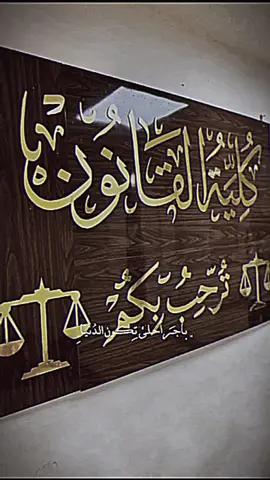 كُلِيَّةُ القَانُون
تُرَحِّبُ بِكُمْ
باجَر احلىٰ تِكون الدُنيا